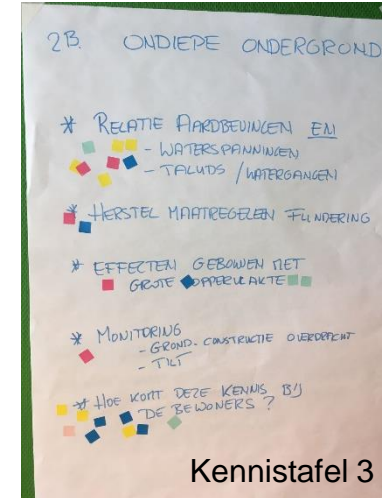 2B. ONDIEPE ONDERGROND
* RELATIE AARDBEVINGEN EN
- WATERSPANNINGEN
- TALUDS / WATERGANGEN
* HERSTEL MAATREGELEN FUNDERING
* EFFECTEN GEBOUWEN MET
GROTE OPPERVLAKTE
* MONITORING
- GROND-CONSTRUCTIE OVERDRACHT
- TILT
* HOE KOMT DEZE KENNIS BIJ
DE BEWONERS?
Kennistafel 3